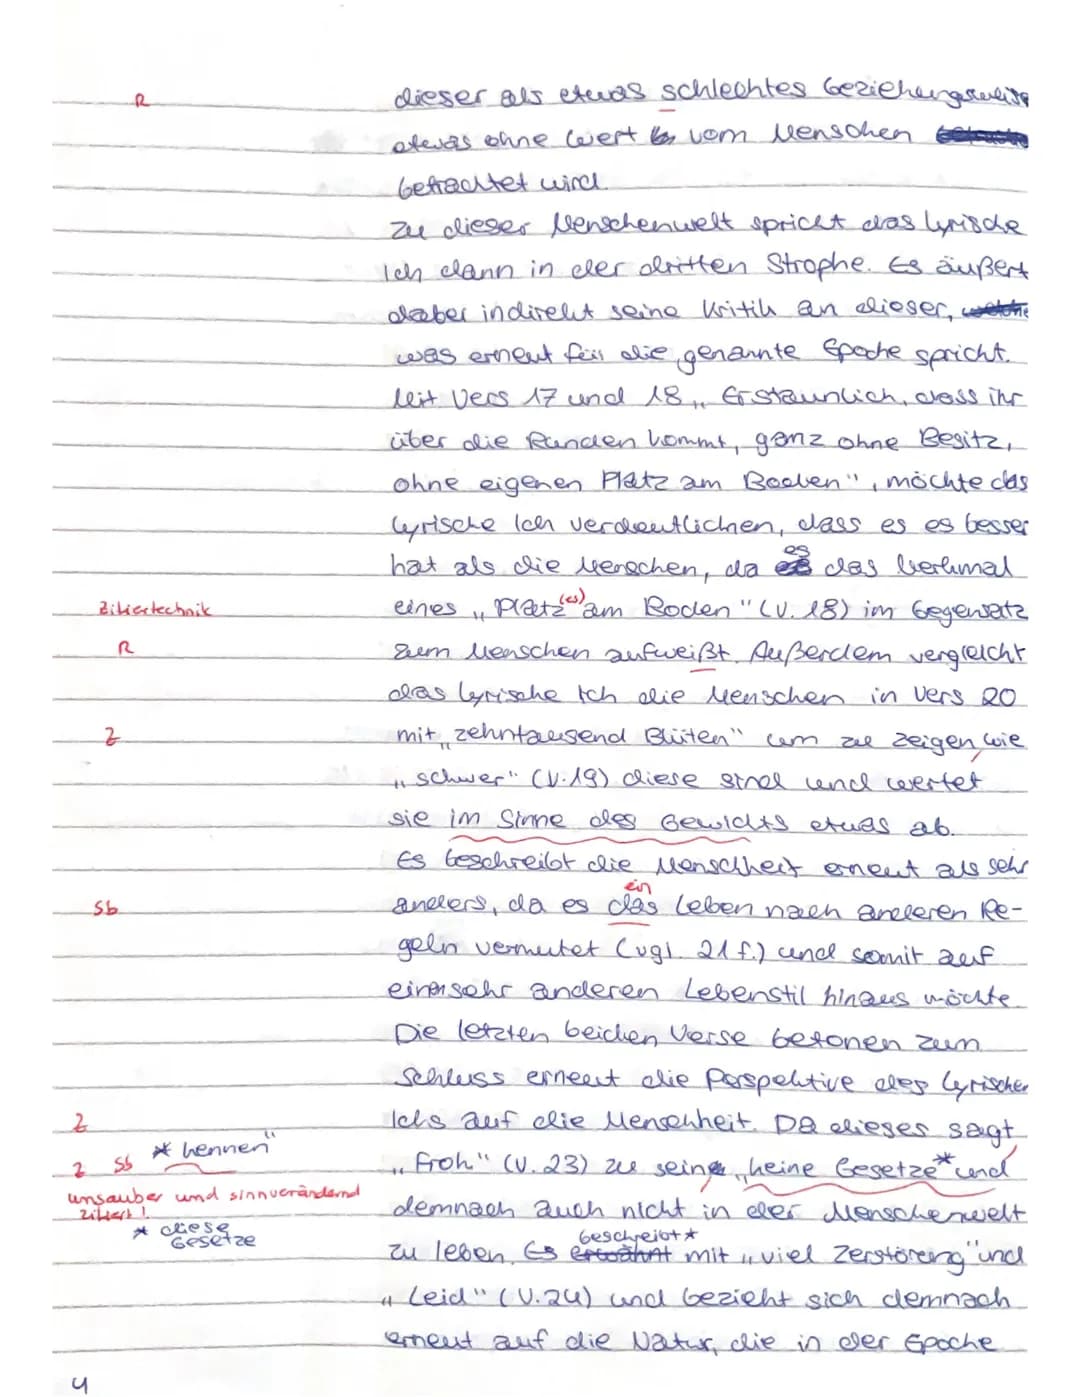 R
dieser als etwas schlechtes beziehungsweise
etwas ohne Wert vom Menschen
betrachtet wird.
Zu dieser Menschenwelt spricht das lyrische
Ich dann in der dritten Strophe. Es äußert
dabei indirekt seine Kritik an dieser, welche
was erneut für die genannte Epoche spricht.
Mit Vers 17 und 18 „Erstaunlich, dass ihr
über die Runden kommt, ganz ohne Besitz,
ohne eigenen Platz am Boden", möchte das
lyrische Ich verdeutlichen, dass es es besser
hat als die Menschen, da es das Merkmal
Zitiertechnik eines „Platz(es) am Boden" (V. 18) im Gegensatz
R zum Menschen aufweißt. Außerdem vergleicht
das lyrische Ich die Menschen in Vers 20
Z mit „zehntausend Blüten" um zu zeigen, wie
„schwer" (V.19) diese sind und wertet
sie im Sinne des Gewichts etwas ab.
Es beschreibt die Menschheit erneut als sehr
Sb anders, da es das ein Leben nach anderen Re-
geln vermutet (vgl. 21 f.) und somit auf
einen sehr anderen Lebenstil hinaus möchte.
Die letzten beiden Verse betonen zum
Schluss erneut die Perspektive des lyrischen
Z Ichs auf die Menschheit. Da dieses sagt
* kennen"
Z Sb „Froh" (V. 23) zu sein, „keine Gesetze* und
unsauber und sinnverändernd
zitiert!
demnach auch nicht in der Menschenwelt
* diese
Gesetze
beschreibt*
zu leben. Es erwähnt mit „viel Zerstörung" und
„Leid" (V.24) und bezieht sich demnach
erneut auf die Natur, die in der Epoche
4